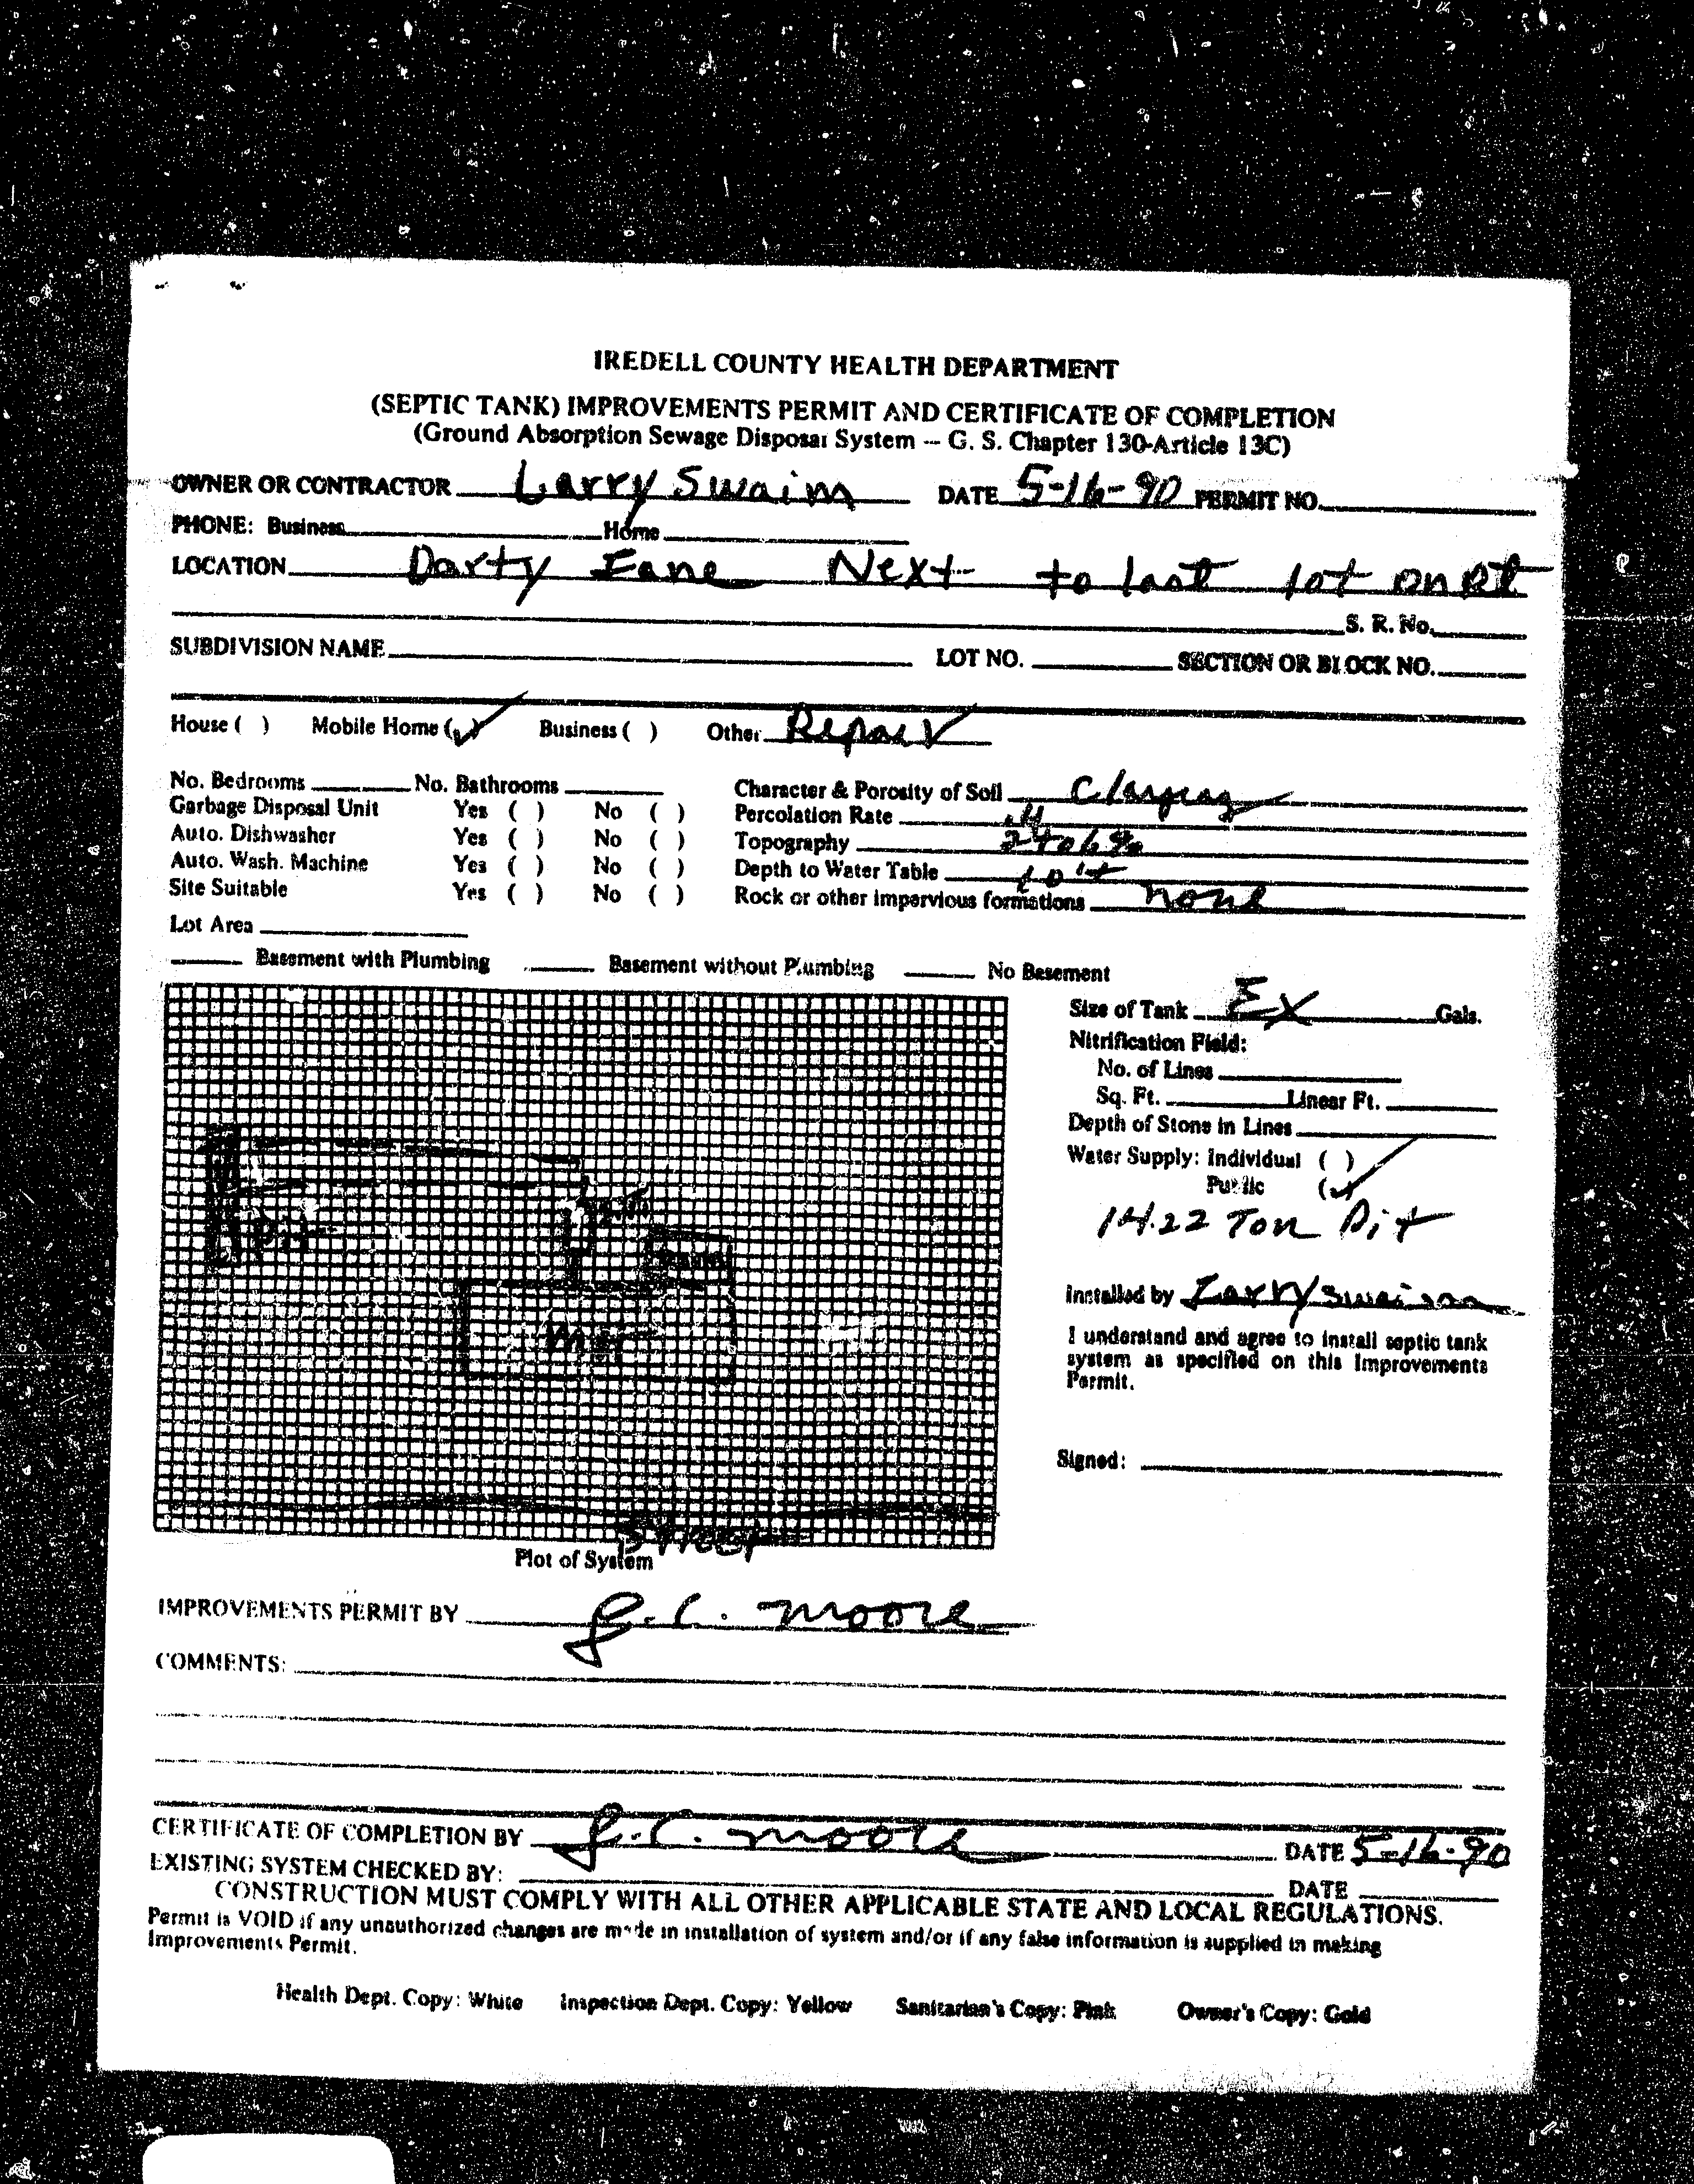 IREDELL COUNTY HEALTH DEPARTMENT
(SEPTIC TANK) IMPROVEMENTS PERMIT AND CERTIFICATE OF COMPLETION
(Ground Absorption Sewage Disposal System -- G. S. Chapter 130-Article 13C)
OWNER OR CONTRACTOR Larry Swaim DATE 5-16-90 PERMIT NO.
PHONE: Business Home
LOCATION Darty Lane Next to last lot on Rt
S. R. No.
SUBDIVISION NAME LOT NO. SECTION OR BLOCK NO.
House ( ) Mobile Home (✓) Business ( ) Other Repair
No. Bedrooms No. Bathrooms Character & Porosity of Soil
Garbage Disposal Unit Yes ( ) No ( ) Percolation Rate .4
Auto. Dishwasher Yes ( ) No ( ) Topography 2 to 6%
Auto. Wash. Machine Yes ( ) No ( ) Depth to Water Table 10'+
Site Suitable Yes ( ) No ( ) Rock or other impervious formations none
Lot Area
Basement with Plumbing Basement without Plumbing No Basement
Size of Tank EX Gals.
Nitrification Field:
No. of Lines
Sq. Ft. Linear Ft.
Depth of Stone in Lines
Water Supply: Individual ( )
Public (✓)
14.22 Ton Pit
Installed by Larry Swaim
I understand and agree to install septic tank
system as specified on this Improvements
Permit.
Signed:
Pit
M H
Street
Plot of System
IMPROVEMENTS PERMIT BY J.C. Moore
COMMENTS:
CERTIFICATE OF COMPLETION BY J.C. Moore DATE 5-16-90
EXISTING SYSTEM CHECKED BY: DATE
CONSTRUCTION MUST COMPLY WITH ALL OTHER APPLICABLE STATE AND LOCAL REGULATIONS.
Permit is VOID if any unauthorized changes are made in installation of system and/or if any false information is supplied in making
Improvements Permit.
Health Dept. Copy: White Inspection Dept. Copy: Yellow Sanitarian's Copy: Pink Owner's Copy: Gold